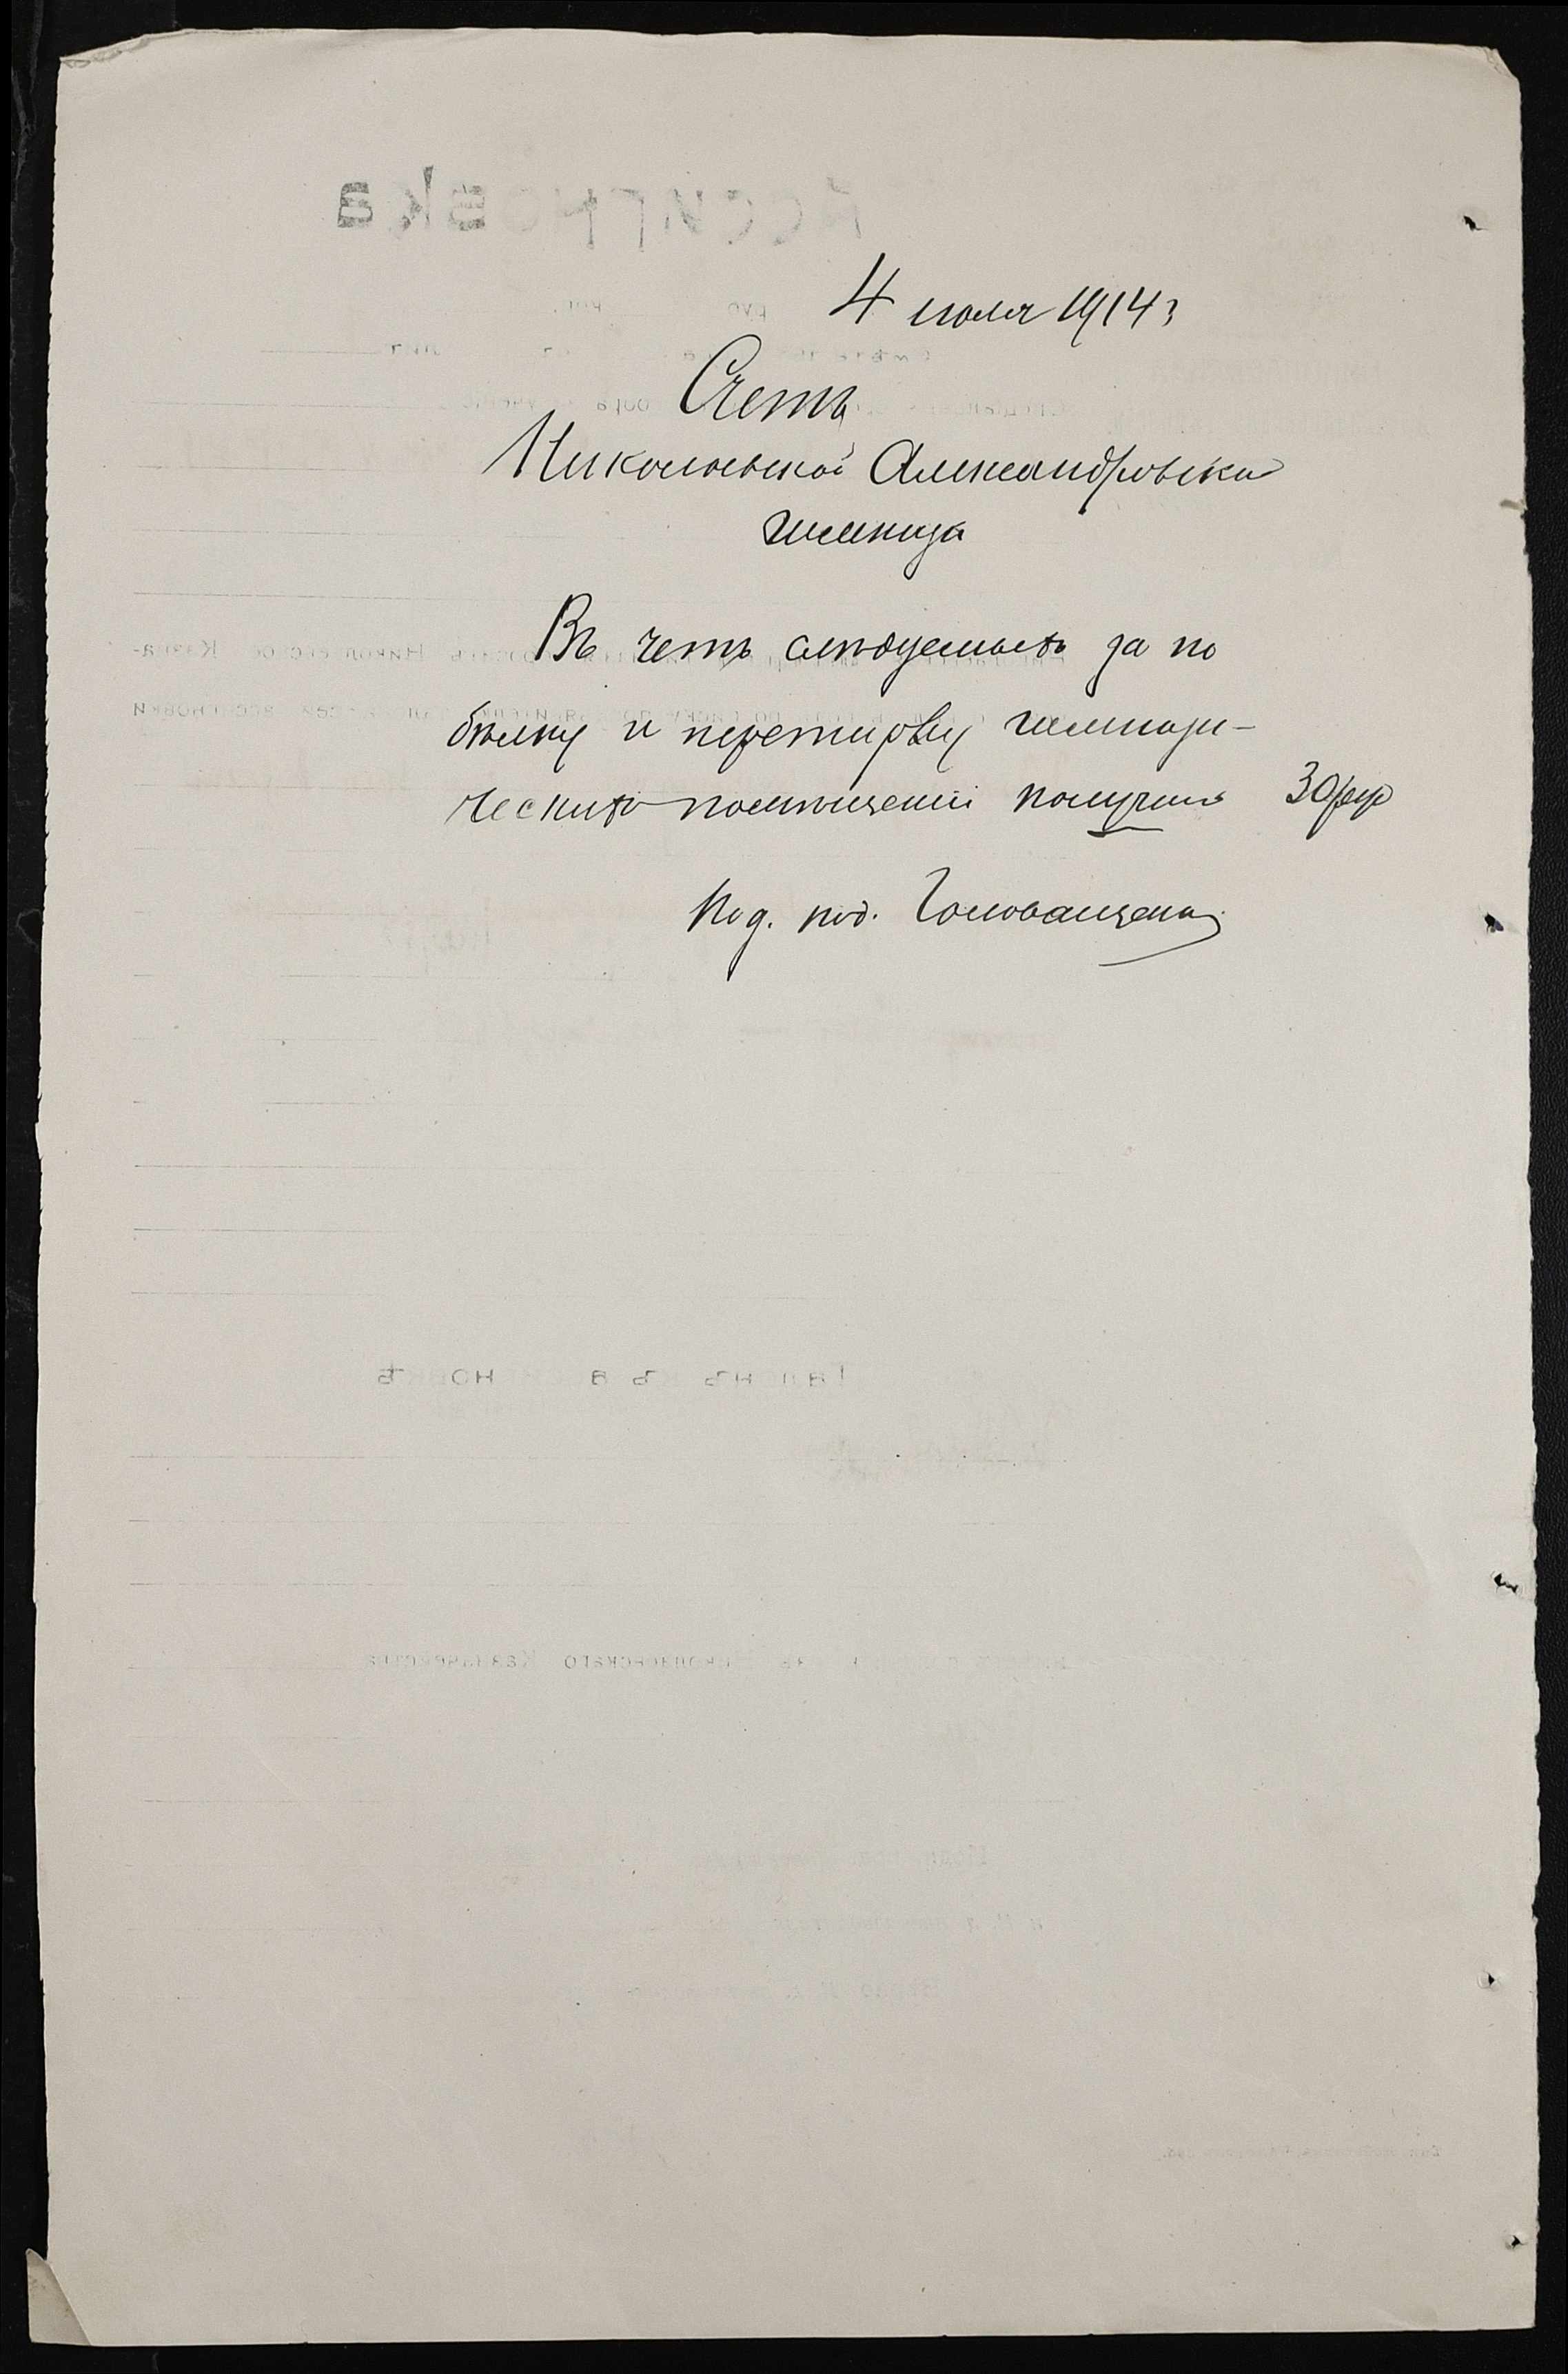 4 июля 1914 г
Счетъ
Николаевской Александровской
гимназіи
Въ счетъ слѣдуемыхъ за по
бѣлку и перетирку гимнази-
ческихъ помѣщеній получилъ 30 руб
Под. под. Головащенко